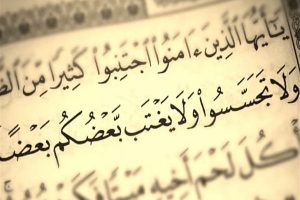 يَٰٓأَيُّهَا ٱلَّذِينَ ءَامَنُوا۟ ٱجْتَنِبُوا۟ كَثِيرًا مِّنَ
وَلَا تَجَسَّسُوا۟ وَلَا يَغْتَب بَّعْضُكُم بَعْضًا
أَكُلَ لَحْمَ أَخِيهِ مَيْتًا